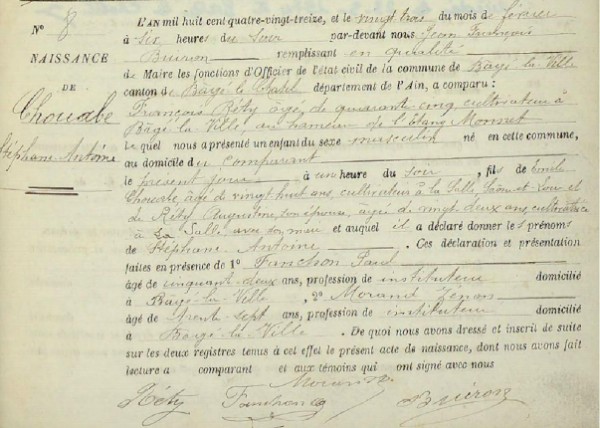 N° 8
NAISSANCE
DE
Chouabe
Stéphane Antoine
L'AN mil huit cent quatre-vingt-treize, et le vingt trois du mois de février
à six heures du soir par-devant nous Jean François
Buiron remplissant en qualité
de Maire les fonctions d'Officier de l'état civil de la commune de Bâgé la Ville
canton de Bâgé le Chatel département de l'Ain, a comparu :
François Réty âgé de quarante cinq cultivateur à
Bâgé la Ville, au hameau de l'Etang Monnet
Lequel nous a présenté un enfant du sexe masculin né en cette commune,
au domicile du comparant
le présent jour à une heure du soir, fils de Emile
Chouabe, âgé de vingt huit ans, cultivateur à la Salle Saône et Loire et
de Réty Augustine, son épouse, âgée de vingt deux ans, cultivatrice
à La Salle avec son mari et auquel il a déclaré donner les prénoms
de Stéphane Antoine . Ces déclaration et présentation
faites en présence de 1° Fanchon Paul
âgé de cinquante deux ans, profession de instituteur domicilié
à Bâgé la Ville , 2° Morand Zénon
âgé de trente sept ans, profession de instituteur domicilié
à Bâgé la Ville . De quoi nous avons dressé et inscrit de suite
sur les deux registres tenus à cet effet le présent acte de naissance, dont nous avons fait
lecture a comparant et aux témoins qui ont signé avec nous
Morand
Réty Fanchon Buiron